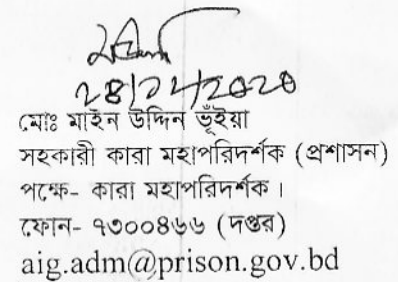 মোঃ মাইন উদ্দিন ভূঁইয়া
সহকারী কারা মহাপরিদর্শক (প্রশাসন)
পক্ষে- কারা মহাপরিদর্শক।
ফোন- ৭৩০০৪৬৬ (দপ্তর)
aig.adm@prison.gov.bd